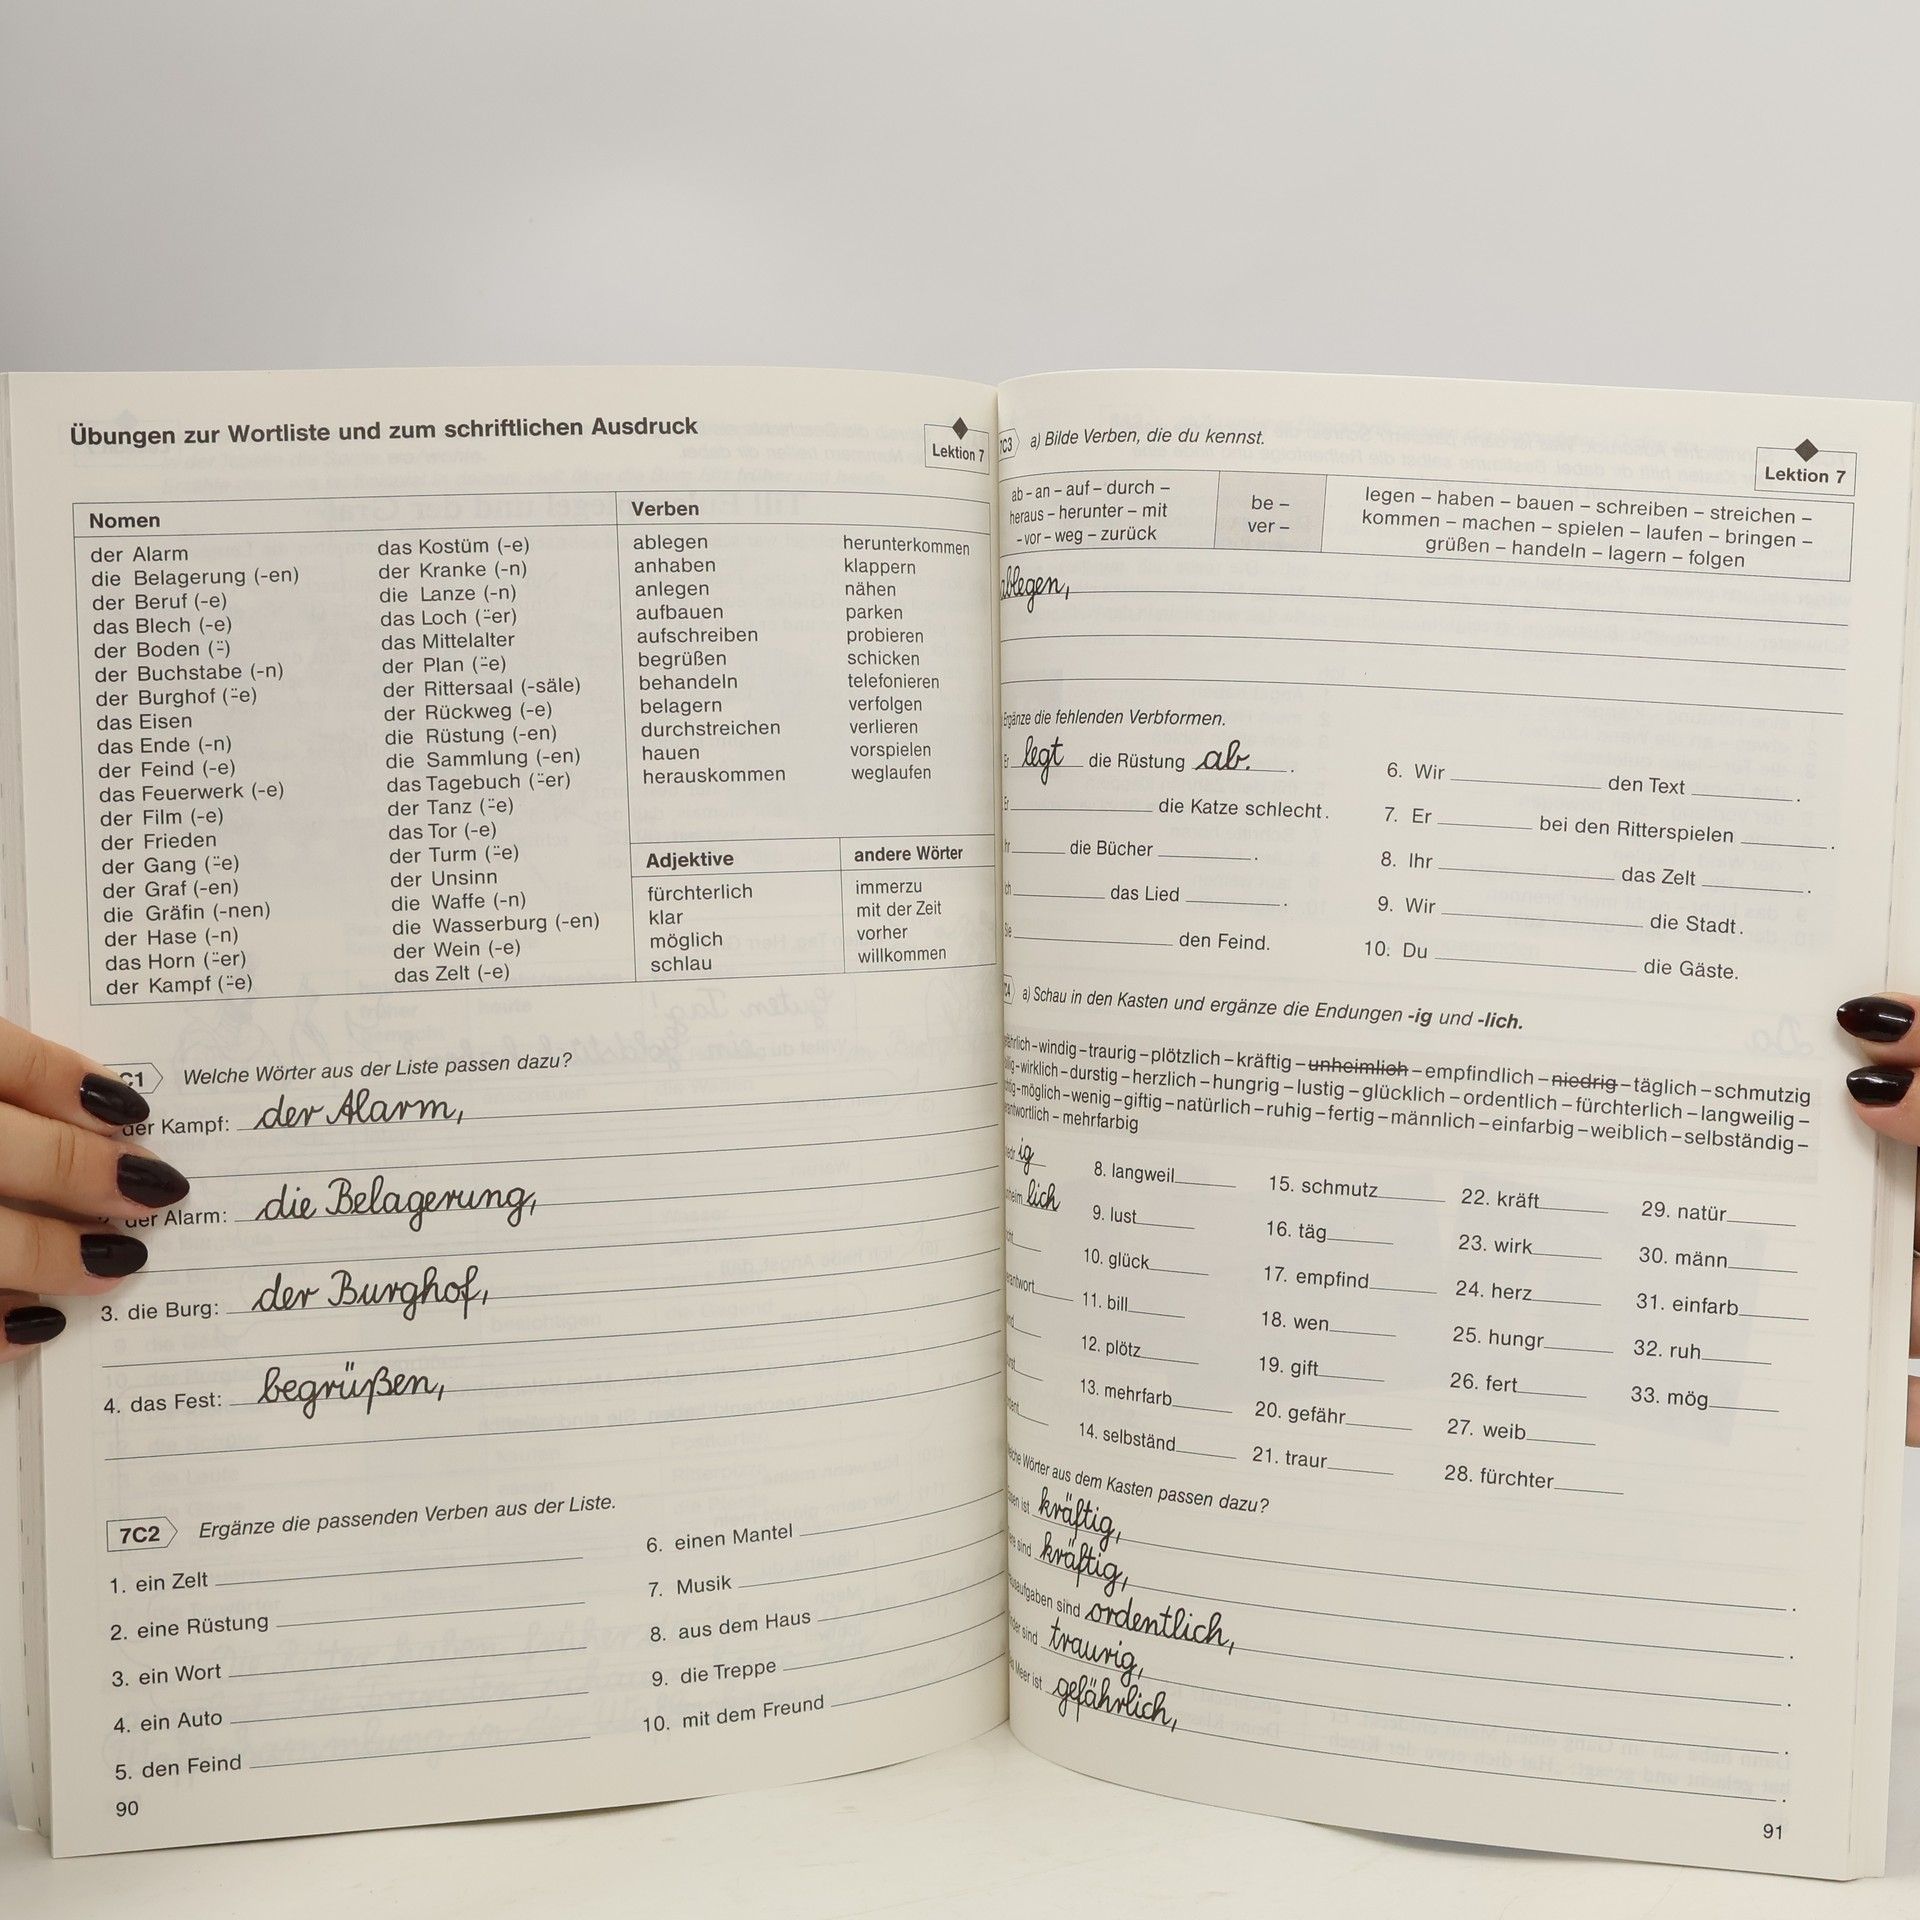 Übungen zur Wortliste und zum schriftlichen Ausdruck
Lektion 7
Nomen
der Alarm
die Belagerung (-en)
der Beruf (-e)
das Blech (-e)
der Boden (¨)
der Buchstabe (-n)
der Burghof (¨-e)
das Eisen
das Ende (-n)
der Feind (-e)
das Feuerwerk (-e)
der Film (-e)
der Frieden
der Gang (¨-e)
der Graf (-en)
die Gräfin (-nen)
der Hase (-n)
das Horn (¨-er)
der Kampf (¨-e)
das Kostüm (-e)
der Kranke (-n)
die Lanze (-n)
das Loch (¨-er)
das Mittelalter
der Plan (¨-e)
der Rittersaal (-säle)
der Rückweg (-e)
die Rüstung (-en)
die Sammlung (-en)
das Tagebuch (¨-er)
der Tanz (¨-e)
das Tor (-e)
der Turm (¨-e)
der Unsinn
die Waffe (-n)
die Wasserburg (-en)
der Wein (-e)
das Zelt (-e)
Verben
ablegen
anhaben
anlegen
aufbauen
aufschreiben
begrüßen
behandeln
belagern
durchstreichen
hauen
herauskommen
herunterkommen
klappern
nähen
parken
probieren
schicken
telefonieren
verfolgen
verlieren
vorspielen
weglaufen
Adjektive
fürchterlich
klar
möglich
schlau
andere Wörter
immerzu
mit der Zeit
vorher
willkommen
C1 Welche Wörter aus der Liste passen dazu?
der Kampf: der Alarm,
der Alarm: die Belagerung,
3. die Burg: der Burghof,
4. das Fest: begrüßen,
7C2 Ergänze die passenden Verben aus der Liste.
1. ein Zelt
2. eine Rüstung
3. ein Wort
4. ein Auto
5. den Feind
6. einen Mantel
7. Musik
8. aus dem Haus
9. die Treppe
10. mit dem Freund
90
7C3 a) Bilde Verben, die du kennst.
Lektion 7
ab – an – auf – durch –
heraus – herunter – mit
– vor – weg – zurück
be –
ver –
legen – haben – bauen – schreiben – streichen –
kommen – machen – spielen – laufen – bringen –
grüßen – handeln – lagern – folgen
ablegen,
Ergänze die fehlenden Verbformen.
Er legt die Rüstung ab. .
Er die Katze schlecht.
die Bücher .
das Lied .
Sie den Feind.
6. Wir den Text .
7. Er bei den Ritterspielen .
8. Ihr das Zelt .
9. Wir die Stadt.
10. Du die Gäste.
a) Schau in den Kasten und ergänze die Endungen -ig und -lich.
–windig–traurig–plötzlich–kräftig–unheimlich–empfindlich–niedrig–täglich–schmutzig
–wirklich–durstig–herzlich–hungrig–lustig–glücklich–ordentlich–fürchterlich–langweilig–
–möglich–wenig–giftig–natürlich–ruhig–fertig–männlich–einfarbig–weiblich–selbständig–
– mehrfarbig
ig
lich
8. langweil
9. lust
10. glück
11. bill
12. plötz
13. mehrfarb
14. selbständ
15. schmutz
16. täg
17. empfind
18. wen
19. gift
20. gefähr
21. traur
22. kräft
23. wirk
24. herz
25. hungr
26. fert
27. weib
28. fürchter
29. natür
30. männ
31. einfarb
32. ruh
33. mög
Wörter aus dem Kasten passen dazu?
ist kräftig,
sind kräftig,
sind ordentlich,
sind traurig,
Meer ist gefährlich,
91